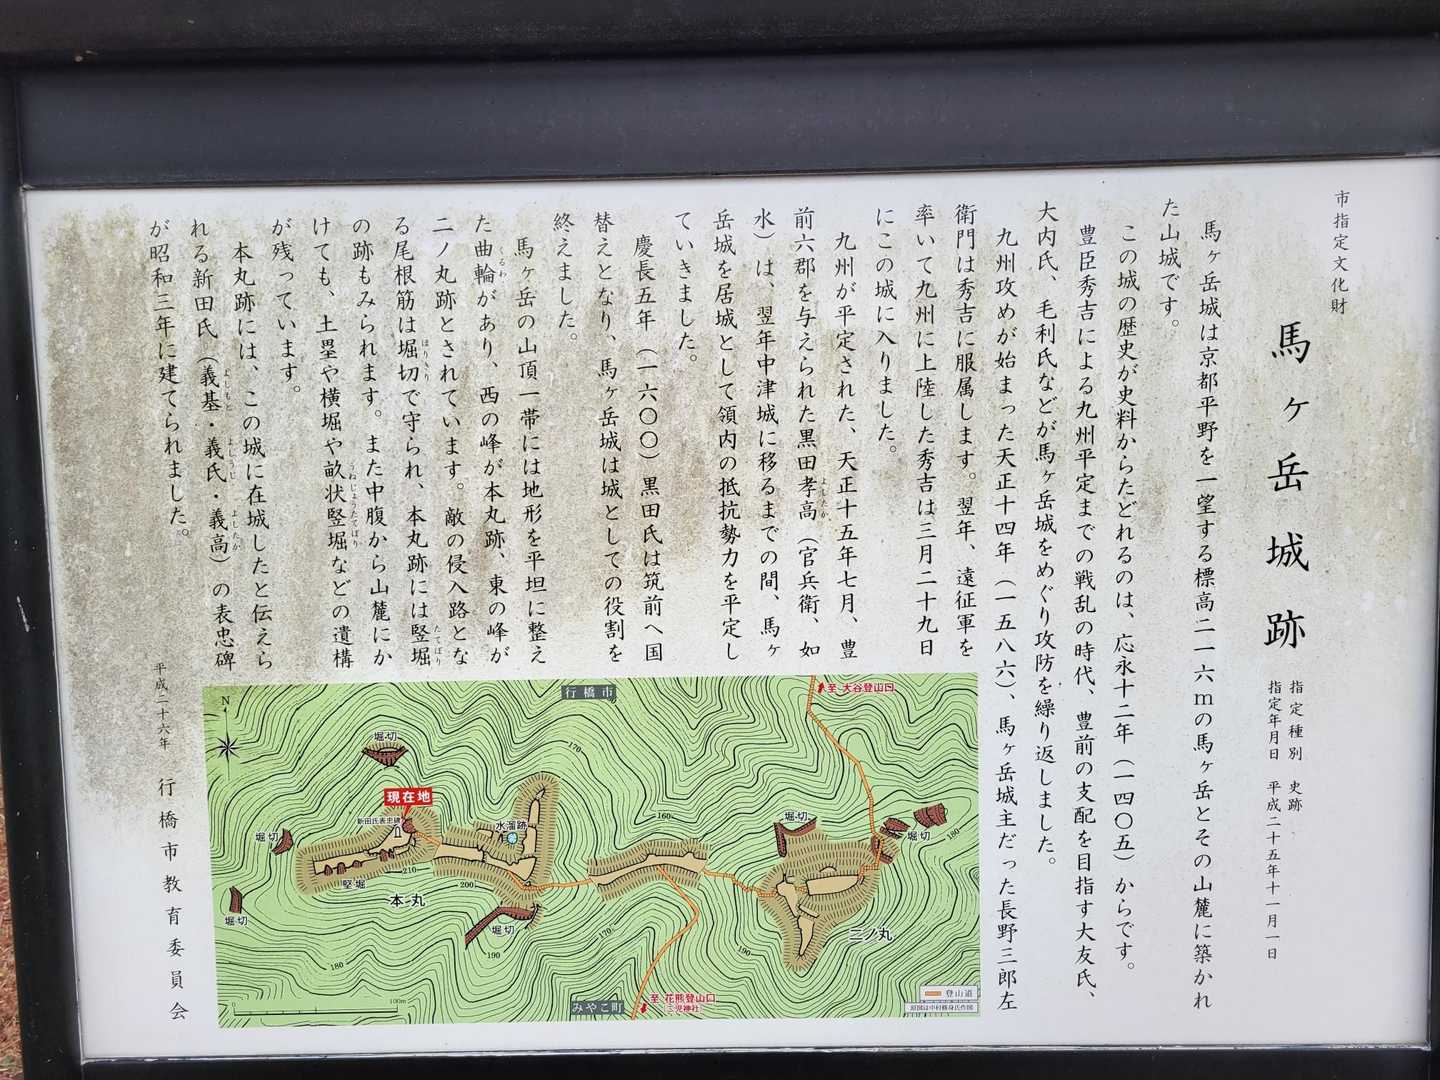 市指定文化財
馬ヶ岳城跡
指定種別 史跡
指定年月日 平成二十五年十一月一日
馬ヶ岳城は京都平野を一望する標高二一六mの馬ヶ岳とその山麓に築かれ
た山城です。
この城の歴史が史料からたどれるのは、応永十二年（一四〇五）からです。
豊臣秀吉による九州平定までの戦乱の時代、豊前の支配を目指す大友氏、
大内氏、毛利氏などが馬ヶ岳城をめぐり攻防を繰り返しました。
九州攻めが始まった天正十四年（一五八六）、馬ヶ岳城主だった長野三郎左
衛門は秀吉に服属します。翌年、遠征軍を
率いて九州に上陸した秀吉は三月二十九日
にこの城に入りました。
九州が平定された、天正十五年七月、豊
前六郡を与えられた黒田孝高（官兵衛、如
よしたか
水）は、翌年中津城に移るまでの間、馬ヶ
岳城を居城として領内の抵抗勢力を平定し
ていきました。
慶長五年（一六〇〇）黒田氏は筑前へ国
替えとなり、馬ヶ岳城は城としての役割を
終えました。
馬ヶ岳の山頂一帯には地形を平坦に整え
た曲輪があり、西の峰が本丸跡、東の峰が
くるわ
二ノ丸跡とされています。敵の侵入路とな
る尾根筋は堀切で守られ、本丸跡には竪堀
ほりきり たてぼり
の跡もみられます。また中腹から山麓にか
けても、土塁や横堀や畝状竪堀などの遺構
うねじょうたてぼり
が残っています。
本丸跡には、この城に在城したと伝えら
れる新田氏（義基・義氏・義高）の表忠碑
よしもと よしうじ よしたか
が昭和三年に建てられました。
平成二十六年 行橋市教育委員会
N
行橋市
至 大谷登山口
堀切
170
現在地
新田氏表忠碑
水溜跡
160
堀切
堀切
堀切
180
竪堀
210
200
本丸
堀切
堀切
170
190
190
二ノ丸
180
0
100m
みやこ町
至 花熊登山口
（三児神社）
登山道
原図は中村修身氏作図